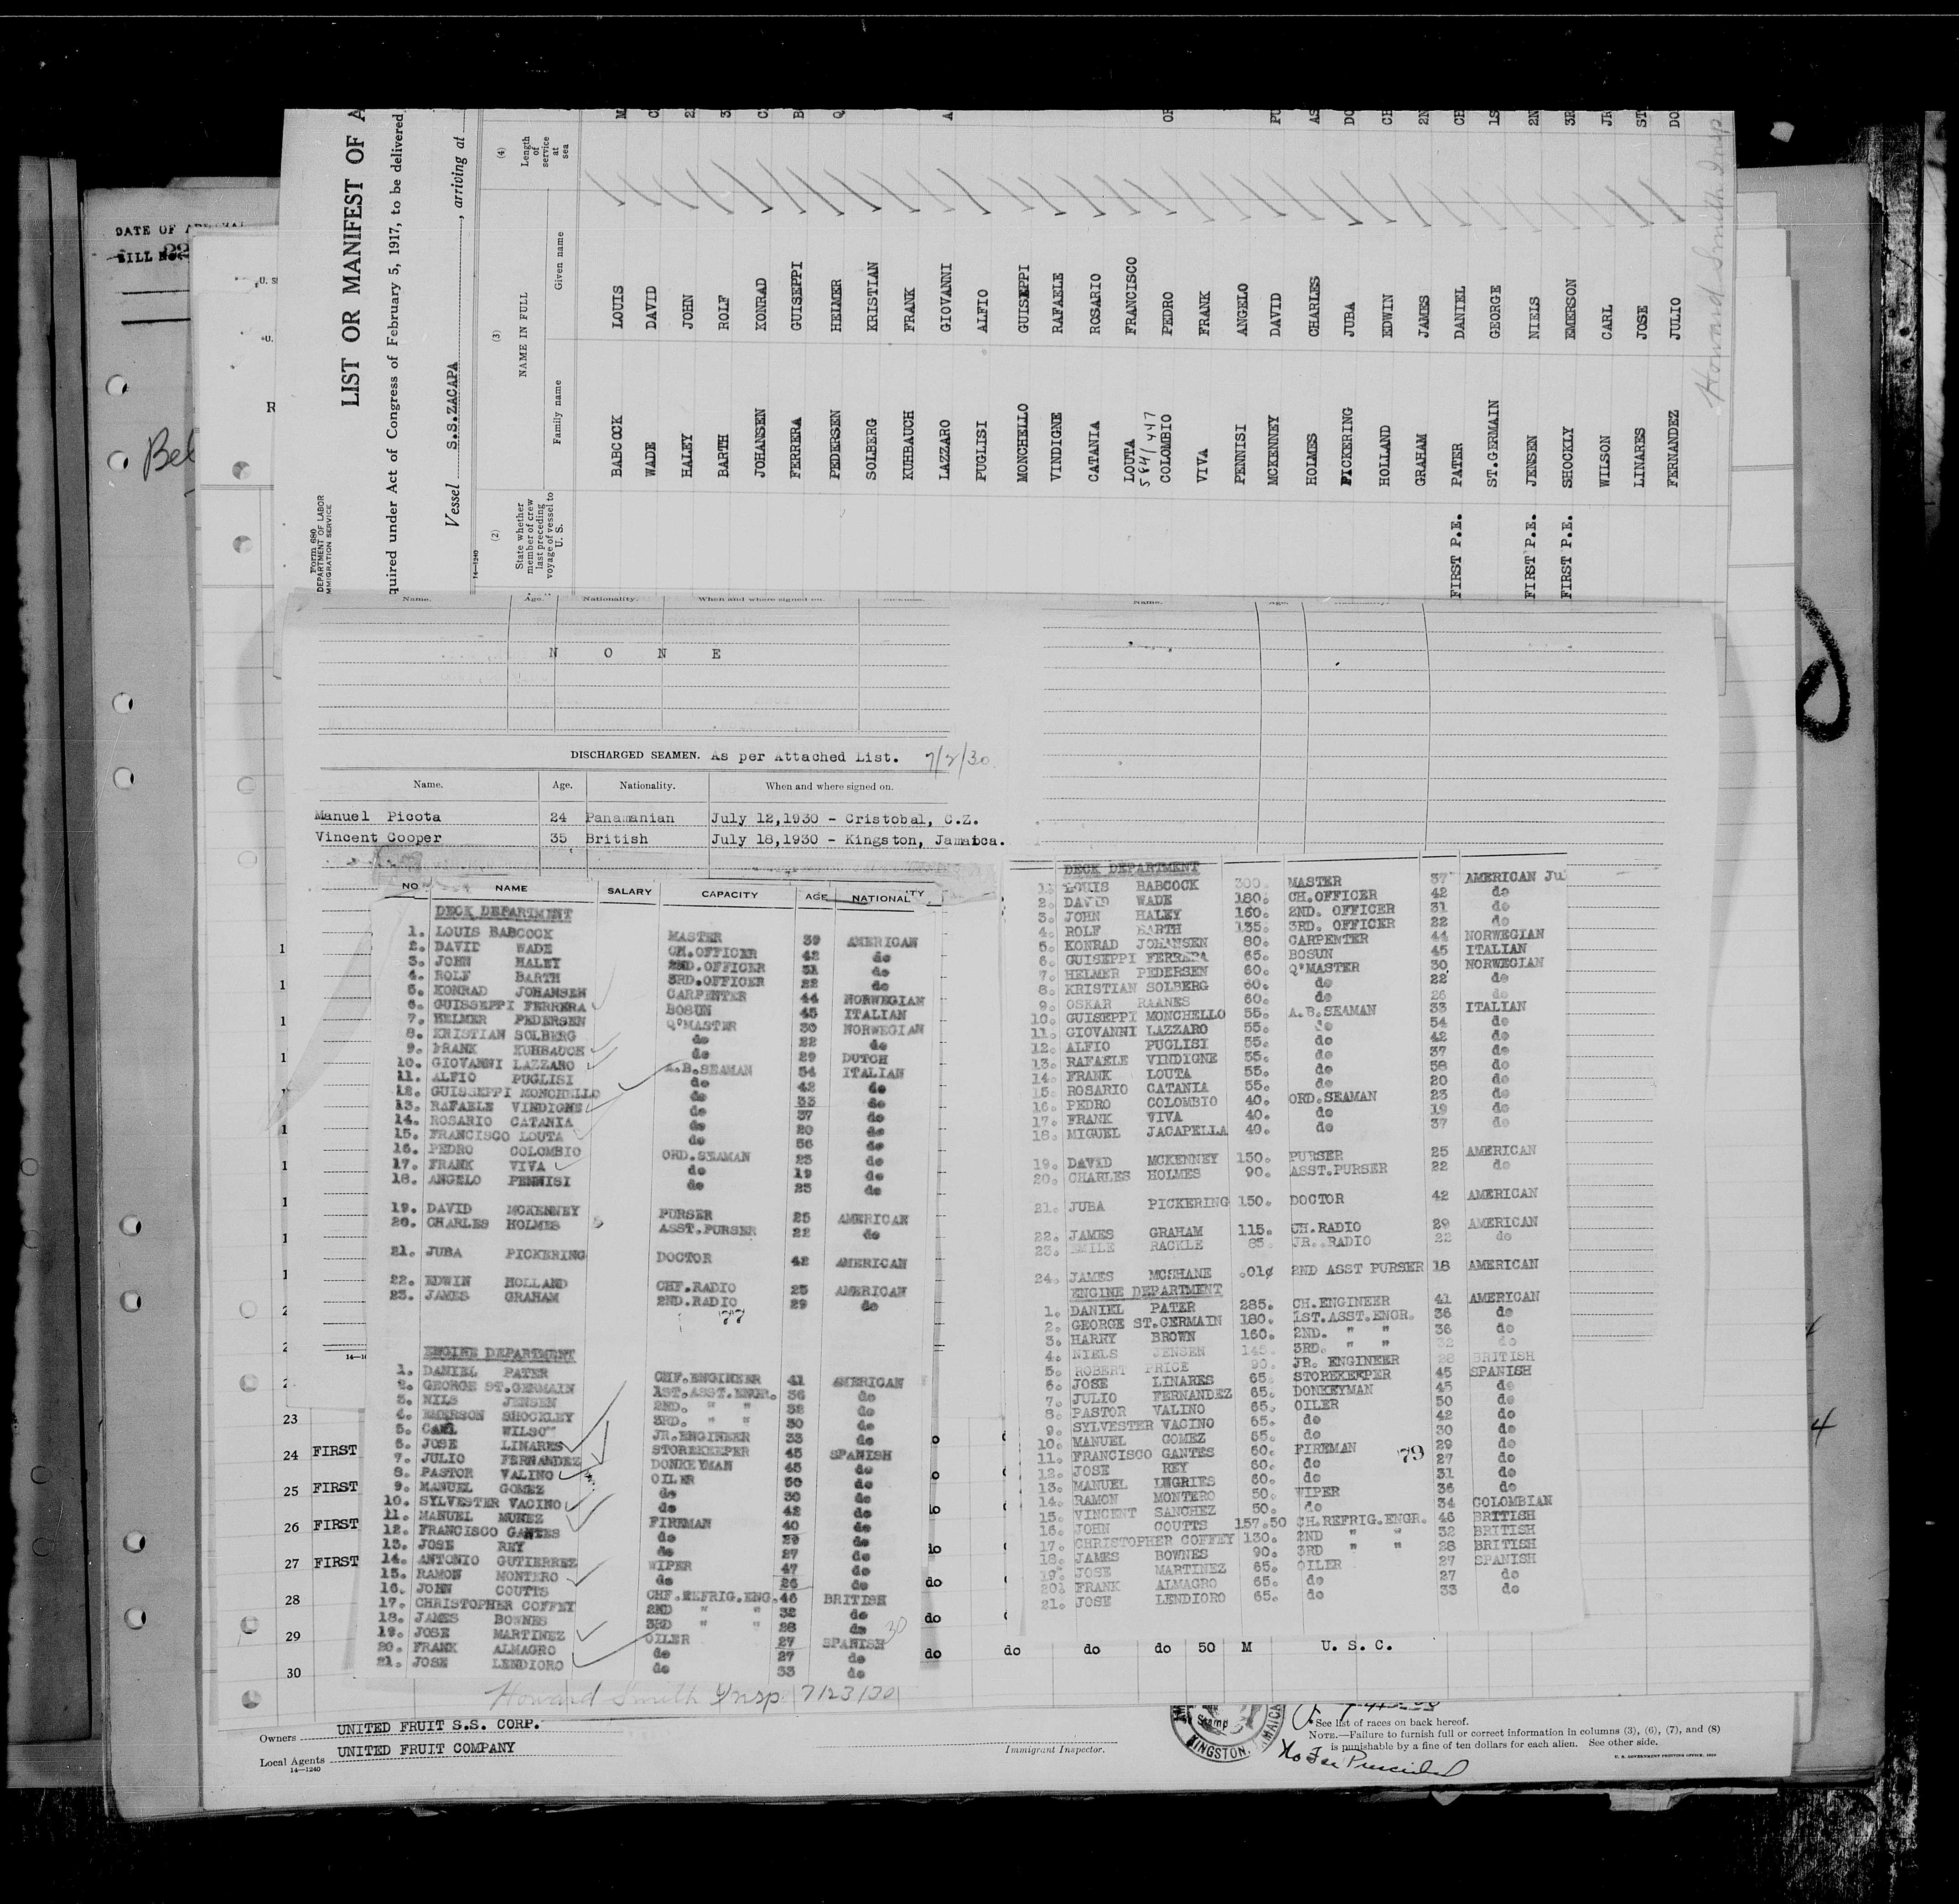 DATE OF
BILL No. 22
Bel
Form 680
DEPARTMENT OF LABOR
IMMIGRATION SERVICE
LIST OR MANIFEST OF A
quired under Act of Congress of February 5, 1917, to be delivered
Vessel S.S.ZACAPA, arriving at
14—1240
(2) (3) (4)
State whether member of crew last preceding voyage of vessel to U. S.
NAME IN FULL
Family name Given name
Length of service at sea
BABCOCK LOUIS
WADE DAVID
HALEY JOHN
BARTH ROLF
JOHANSEN KONRAD
FERRERA GUISEPPI
PEDERSEN HELMER
SOLBERG KRISTIAN
KUHBAUCH FRANK
LAZZARO GIOVANNI
PUGLISI ALFIO
MONCHELLO GUISEPPI
VINDIGNE RAFAELE
CATANIA ROSARIO
LOUTA FRANCISCO
584/447
COLOMBIO PEDRO
VIVA FRANK
PENNISI ANGELO
MCKENNEY DAVID
HOLMES CHARLES
PICKERING JUBA
HOLLAND EDWIN
GRAHAM JAMES
FIRST P.E. PATER DANIEL
ST.GERMAIN GEORGE
FIRST P.E. JENSEN NIELS
FIRST P.E. SHOCKLY EMERSON
WILSON CARL
LINARES JOSE
FERNANDEZ JULIO
Howard Smith Insp
Name. Age. Nationality. When and where signed on.
N O N E
DISCHARGED SEAMEN. As per Attached List.
Name. Age. Nationality. When and where signed on.
Manuel Picota 24 Panamanian July 12,1930 - Cristobal, C.Z.
Vincent Cooper 35 British July 18,1930 - Kingston, Jamaica.
NO NAME SALARY CAPACITY AGE NATIONALITY
DECK DEPARTMENT
1. LOUIS BABCOCK MASTER 39 AMERICAN
2. DAVID WADE CH.OFFICER 42 do
3. JOHN HALEY 2ND.OFFICER 31 do
4. ROLF BARTH 3RD.OFFICER 22 do
5. KONRAD JOHANSEN CARPENTER 44 NORWEGIAN
6. GUISSEPPI FERRERA BOSUN 45 ITALIAN
7. HELMER PEDERSEN Q'MASTER 30 NORWEGIAN
8. KRISTIAN SOLBERG do 22 do
9. FRANK KUHBAUCH do 29 DUTCH
10. GIOVANNI LAZZARO A.B.SEAMAN 54 ITALIAN
11. ALFIO PUGLISI do 42 do
12. GUISSEPPI MONCHELLO do 33 do
13. RAFAELE VINDIGNE do 37 do
14. ROSARIO CATANIA do 20 do
15. FRANCISCO LOUTA do 56 do
16. PEDRO COLOMBIO ORD.SEAMAN 23 do
17. FRANK VIVA do 19 do
18. ANGELO PENNISI do 23 do
19. DAVID MCKENNEY PURSER 25 AMERICAN
20. CHARLES HOLMES ASST.PURSER 22 do
21. JUBA PICKERING DOCTOR 42 AMERICAN
22. EDWIN HOLLAND CHF.RADIO 25 AMERICAN
23. JAMES GRAHAM 2ND.RADIO 29 do
ENGINE DEPARTMENT
1. DANIEL PATER CHF.ENGINEER 41 AMERICAN
2. GEORGE ST.GERMAIN 1ST.ASST.ENGR. 36 do
3. NILS JENSEN 2ND. " " 32 do
4. EMERSON SHOCKLEY 3RD. " " 30 do
5. CARL WILSON JR.ENGINEER 33 do
6. JOSE LINARES STOREKEEPER 45 SPANISH
7. JULIO FERNANDEZ DONKEYMAN 45 do
8. PASTOR VALINO OILER 50 do
9. MANUEL GOMEZ do 30 do
10. SYLVESTER VACINO do 42 do
11. MANUEL MUNEZ FIREMAN 40 do
12. FRANCISCO GANTES do 29 do
13. JOSE REY do 27 do
14. ANTONIO GUTIERREZ WIPER 47 do
15. RAMON MONTERO do 26 do
16. JOHN COUTTS CHF.REFRIG.ENG. 46 BRITISH
17. CHRISTOPHER COFFEY 2ND " " 32 do
18. JAMES BOWNES 3RD " " 28 do
19. JOSE MARTINEZ OILER 27 SPANISH
20. FRANK ALMAGRO do 27 do
21. JOSE LENDIORO do 33 do
30
Howard Smith Insp 7/23/30
DECK DEPARTMENT
1. LOUIS BABCOCK 300. MASTER 37 AMERICAN Ju
2. DAVID WADE 180. CH.OFFICER 42 do
3. JOHN HALEY 160. 2ND. OFFICER 31 do
4. ROLF BARTH 135. 3RD. OFFICER 22 do
5. KONRAD JOHANSEN 80. CARPENTER 44 NORWEGIAN
6. GUISEPPI FERRERA 65. BOSUN 45 ITALIAN
7. HELMER PEDERSEN 60. Q'MASTER 30 NORWEGIAN
8. KRISTIAN SOLBERG 60. do 22 do
9. OSKAR RAANES 60. do 26 do
10. GUISEPPI MONCHELLO 55. A.B.SEAMAN 33 ITALIAN
11. GIOVANNI LAZZARO 55. do 54 do
12. ALFIO PUGLISI 55. do 42 do
13. RAFAELE VINDIGNE 55. do 37 do
14. FRANK LOUTA 55. do 58 do
15. ROSARIO CATANIA 55. do 20 do
16. PEDRO COLOMBIO 40. ORD.SEAMAN 23 do
17. FRANK VIVA 40. do 19 do
18. MIGUEL JACAPELLA 40. do 37 do
19. DAVID MCKENNEY 150. PURSER 25 AMERICAN
20. CHARLES HOLMES 90. ASST.PURSER 22 do
21. JUBA PICKERING 150. DOCTOR 42 AMERICAN
22. JAMES GRAHAM 115. CH.RADIO 29 AMERICAN
23. EMILE RACKLE 85. JR. RADIO 22 do
24. JAMES MCSHANE .01¢ 2ND ASST PURSER 18 AMERICAN
ENGINE DEPARTMENT
1. DANIEL PATER 285. CH.ENGINEER 41 AMERICAN
2. GEORGE ST.GERMAIN 180. 1ST.ASST.ENGR. 36 do
3. HARRY BROWN 160. 2ND. " " 36 do
4. NIELS JENSEN 145. 3RD. " " 32 do
5. ROBERT PRICE 90. JR. ENGINEER 28 BRITISH
6. JOSE LINARES 65. STOREKEEPER 45 SPANISH
7. JULIO FERNANDEZ 65. DONKEYMAN 45 do
8. PASTOR VALINO 65. OILER 50 do
9. SYLVESTER VACINO 65. do 42 do
10. MANUEL GOMEZ 65. do 30 do
11. FRANCISCO GANTES 60. FIREMAN 29 do
12. JOSE REY 60. do 27 do
13. MANUEL LNGRIES 60. do 31 do
14. RAMON MONTERO 50. WIPER 36 do
15. VINCENT SANCHEZ 50. do 34 COLOMBIAN
16. JOHN COUTTS 157.50 CH.REFRIG.ENGR. 46 BRITISH
17. CHRISTOPHER COFFEY 130. 2ND " " 32 BRITISH
18. JAMES BOWNES 90. 3RD " " 28 BRITISH
19. JOSE MARTINEZ 65. OILER 27 SPANISH
20. FRANK ALMAGRO 65. do 27 do
21. JOSE LENDIORO 65. do 33 do
79
23
24 FIRST
25 FIRST
26 FIRST
27 FIRST
28
29
30
do do do do 50 M U. S. C.
Owners UNITED FRUIT S.S. CORP.
Local Agents UNITED FRUIT COMPANY
14—1240
Immigrant Inspector.
Stamp
KINGSTON, JAMAICA
See list of races on back hereof.
NOTE.—Failure to furnish full or correct information in columns (3), (6), (7), and (8)
is punishable by a fine of ten dollars for each alien. See other side.
No Fee Prescribed